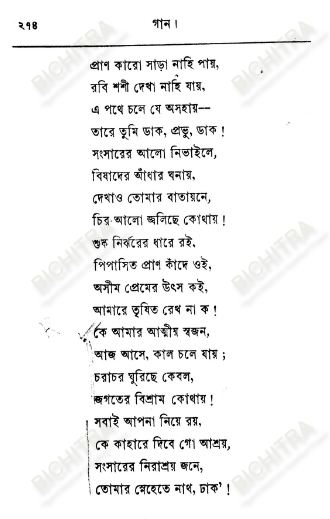 ২৭৪ গান।
প্রাণ কারো সাড়া নাহি পায়,
রবি শশী দেখা নাহি যায়,
এ পথে চলে যে অসহায়—
তারে তুমি ডাক, প্রভু, ডাক!
সংসারের আলো নিভাইলে,
বিষাদের আঁধার ঘনায়,
দেখাও তোমার বাতায়নে,
চির আলো জলিছে কোথায়!
শুষ্ক নির্ঝরের ধারে রই,
পিপাসিত প্রাণ কাঁদে ওই,
অসীম প্রেমের উৎস কই,
আমারে তৃষিত রেখ না ক!
কে আমার আত্মীয় স্বজন,
আজ আসে, কাল চলে যায়;
চরাচর ঘুরিছে কেবল,
জগতের বিশ্রাম কোথায়!
সবাই আপনা নিয়ে রয়,
কে কাহারে দিবে গো আশ্রয়,
সংসারের নিরাশ্রয় জনে,
তোমার স্নেহেতে নাথ, ঢাক'!
BICHITRA
BICHITRA
BICHITRA
BICHITRA
BICHITRA
BICHITRA